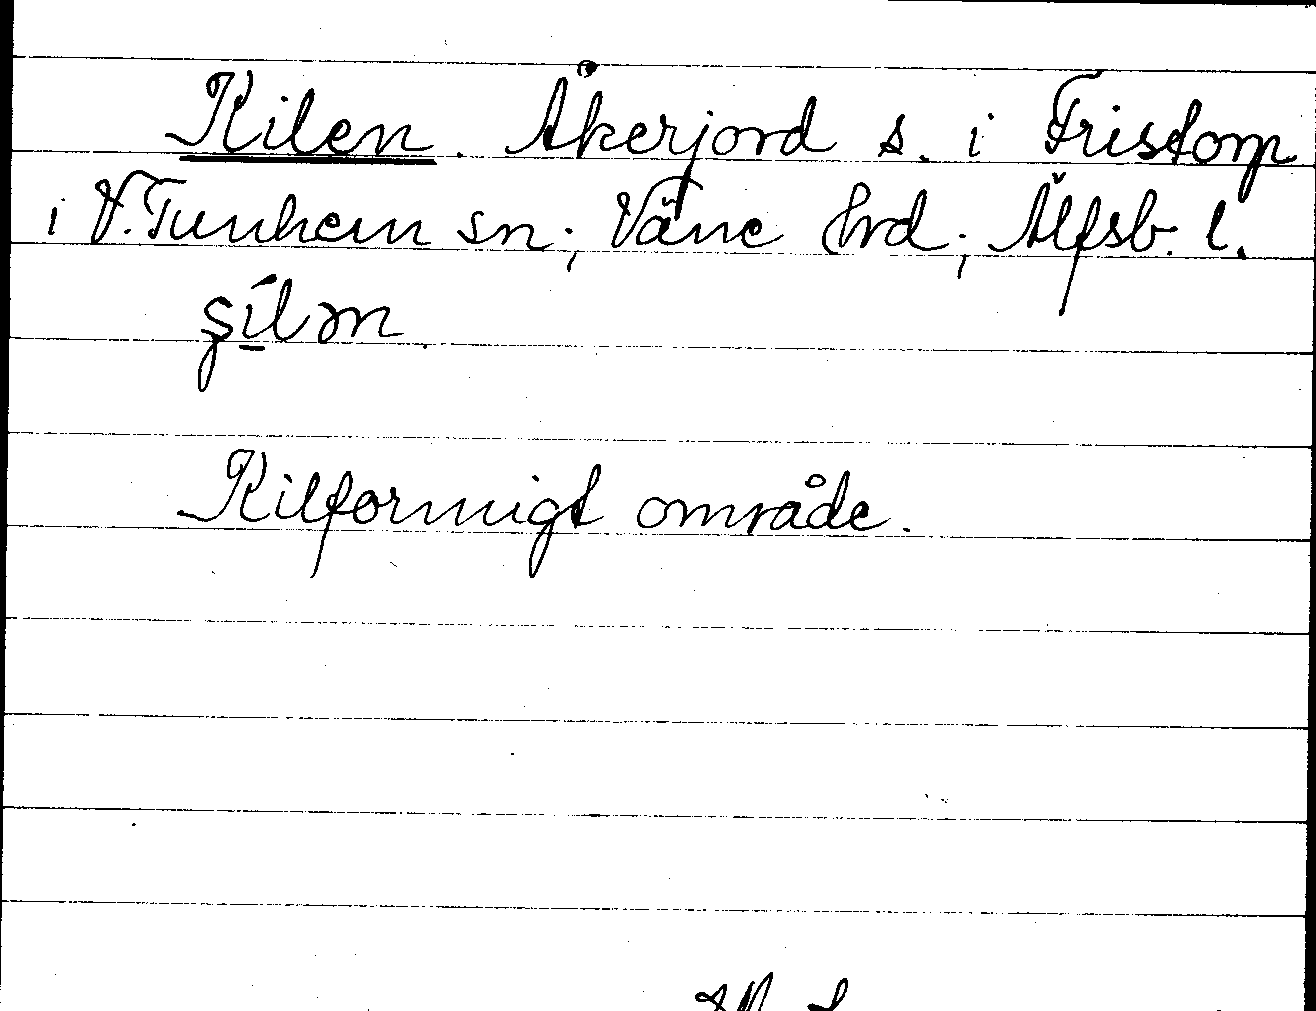 Kilen. Åkerjord s. i Fristorp
i V. Tunhem sn; Väne hrd; Älfsb. l.
Kilformigt område.